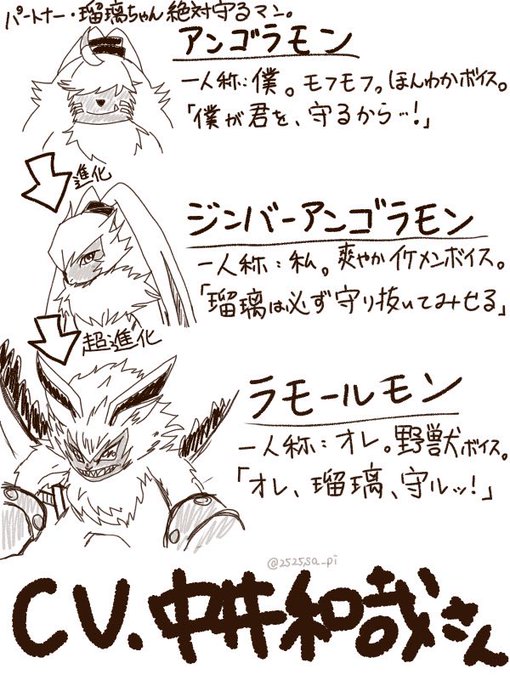 パートナー・瑠璃ちゃん絶対守るマン。
アンゴラモン
一人称:僕。モフモフ。ほんわかボイス。
「僕が君を、守るから…!」
進化
ジンバーアンゴラモン
一人称:私。爽やかイケメンボイス。
「瑠璃は必ず守り抜いてみせる」
超進化
ラモールモン
一人称:オレ。野獣ボイス。
「オレ、瑠璃、守ルッ!」
@2525sa_pi
CV.中井和哉さん